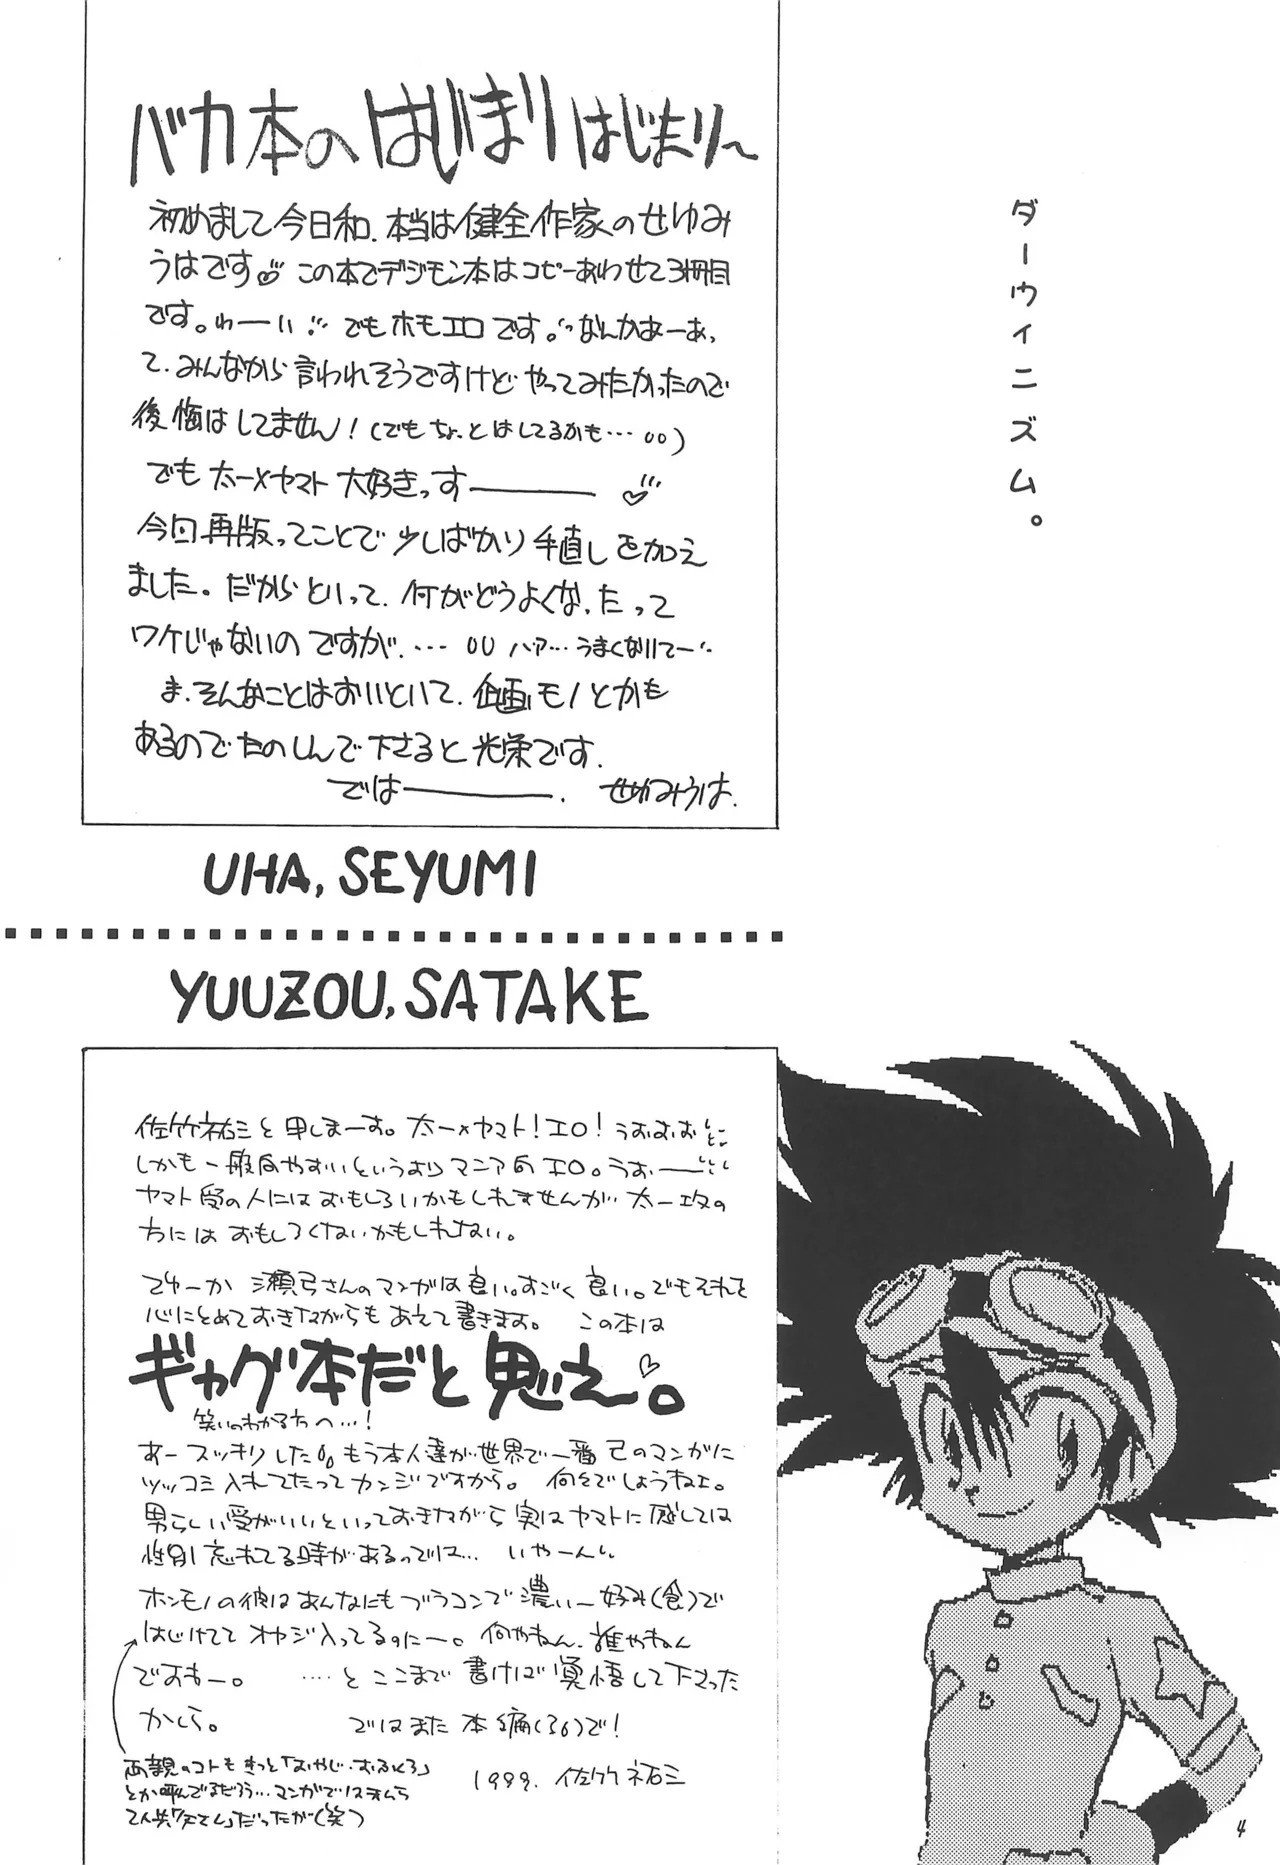 ダーウィニズム。
バカ本のはじまりはじまり〜
初めまして今日和、本当は健全作家のせゆみ
うはです この本でデジモン本はコピーあわせて3冊目
です。わーい でもホモエロです。なんかあーあっ
て、みんなから言われそうですけどやってみたかったので
後悔はしてません！（でもちょっとはしてるかも…）
でも太一×ヤマト大好きっす———
今回再版ってことで少しばかり手直しを加え
ました。だからといって、何がどうよくな、たって
ワケじゃないのですが、… ハァ…うまくなりてー
ま、そんなことはおいといて、企画モノとかも
あるのでたのしんで下さると光栄です。
では———. せゆみうは.
UHA, SEYUMI
YUUZOU, SATAKE
佐竹祐三と申しまーす。太一×ヤマト！エロ！うおおお
しかも一般向やすいというよりマニア向エロ。うおー
ヤマト受の人にはおもしろいかもしれませんが太一攻の
方にはおもしろくないかもしれない。
でゆーか 瀬弓さんのマンガは良い。すごく良い。でもそれを
心にとめておきながらもあえて書きます。 この本は
ギャグ本だと思え。
笑いのわかる方へ…！
あースッキリした。もう本人達が世界で一番己のマンガに
ツッコミ入れてたってカンジですから。 何なんでしょうねェ。
男らしい受がいいといっておきながら実はヤマトに感しては
性別忘れてる時があるのでは… いやーんい、
ホンモノの彼はあんなにもブラコンで濃いー好み（食）で
はじけててオヤジ入ってるのにー。何やねん、誰やねん
でおもー。 …とここまで書けば覚悟して下さった
かしら。 ではまた本編（30）で！
両親のコトもきっと「おやじ・おふくろ」
とか呼んでるだろう…マンガでは
だったが（笑）
1999. 佐竹祐三
4